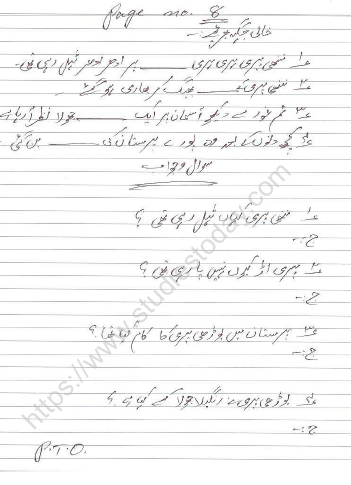 Page no. 8
خالی جگہ بھریئے:-
۱؎ ننھی پری ہری ہری ______ پر ادھر ادھر ٹہل رہی تھی۔
۲؎ ننھی پری ______ بھیگ کر بھاری ہو گئے۔
۳؎ تم غور سے دیکھو آسمان پر ایک ______ جولا نظر آ رہا ہے
۴؎ کچھ دنوں کے بعد وہ پورے پرستان کی ______ بن گئی۔
سوال و جواب
۱؎ ننھی پری کہاں ٹہل رہی تھی ؟
ج:-
۲؎ پری اڑ کیوں نہیں پا رہی تھی ؟
ج:-
۳؎ پرستان میں بوڑھی پری کا کام کیا تھا ؟
ج:-
۴؎ بوڑھی پری نے رنگیلا جولا کسے کہا ہے ؟
ج:-
P.T.O.
https://www.studiestoday.com